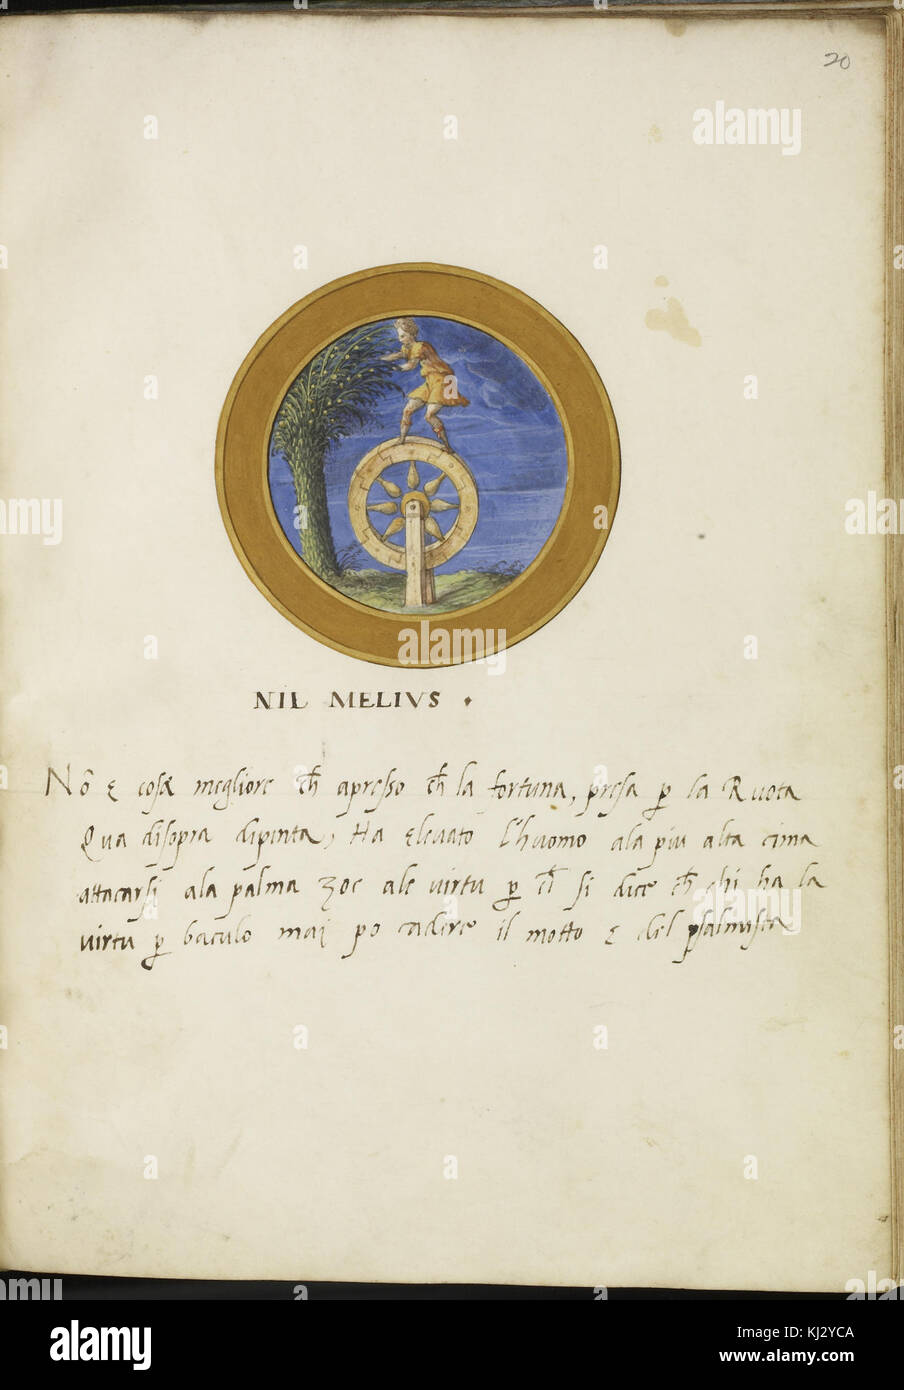 20
NIL MELIVS
Nõ e cosa megliore ch apresso ch la fortuna, presa p la Ruota
Qua disopra dipinta, Ha elevato l'huomo ala piu alta cima
attacarsi ala palma zoe ale virtu p si dice ch chi ha la
virtu p baculo mai po cadere il motto e del psalmista
alamy
alamy
alamy
alamy
a
alamy
Image ID: KJ2YCA
www.alamy.com